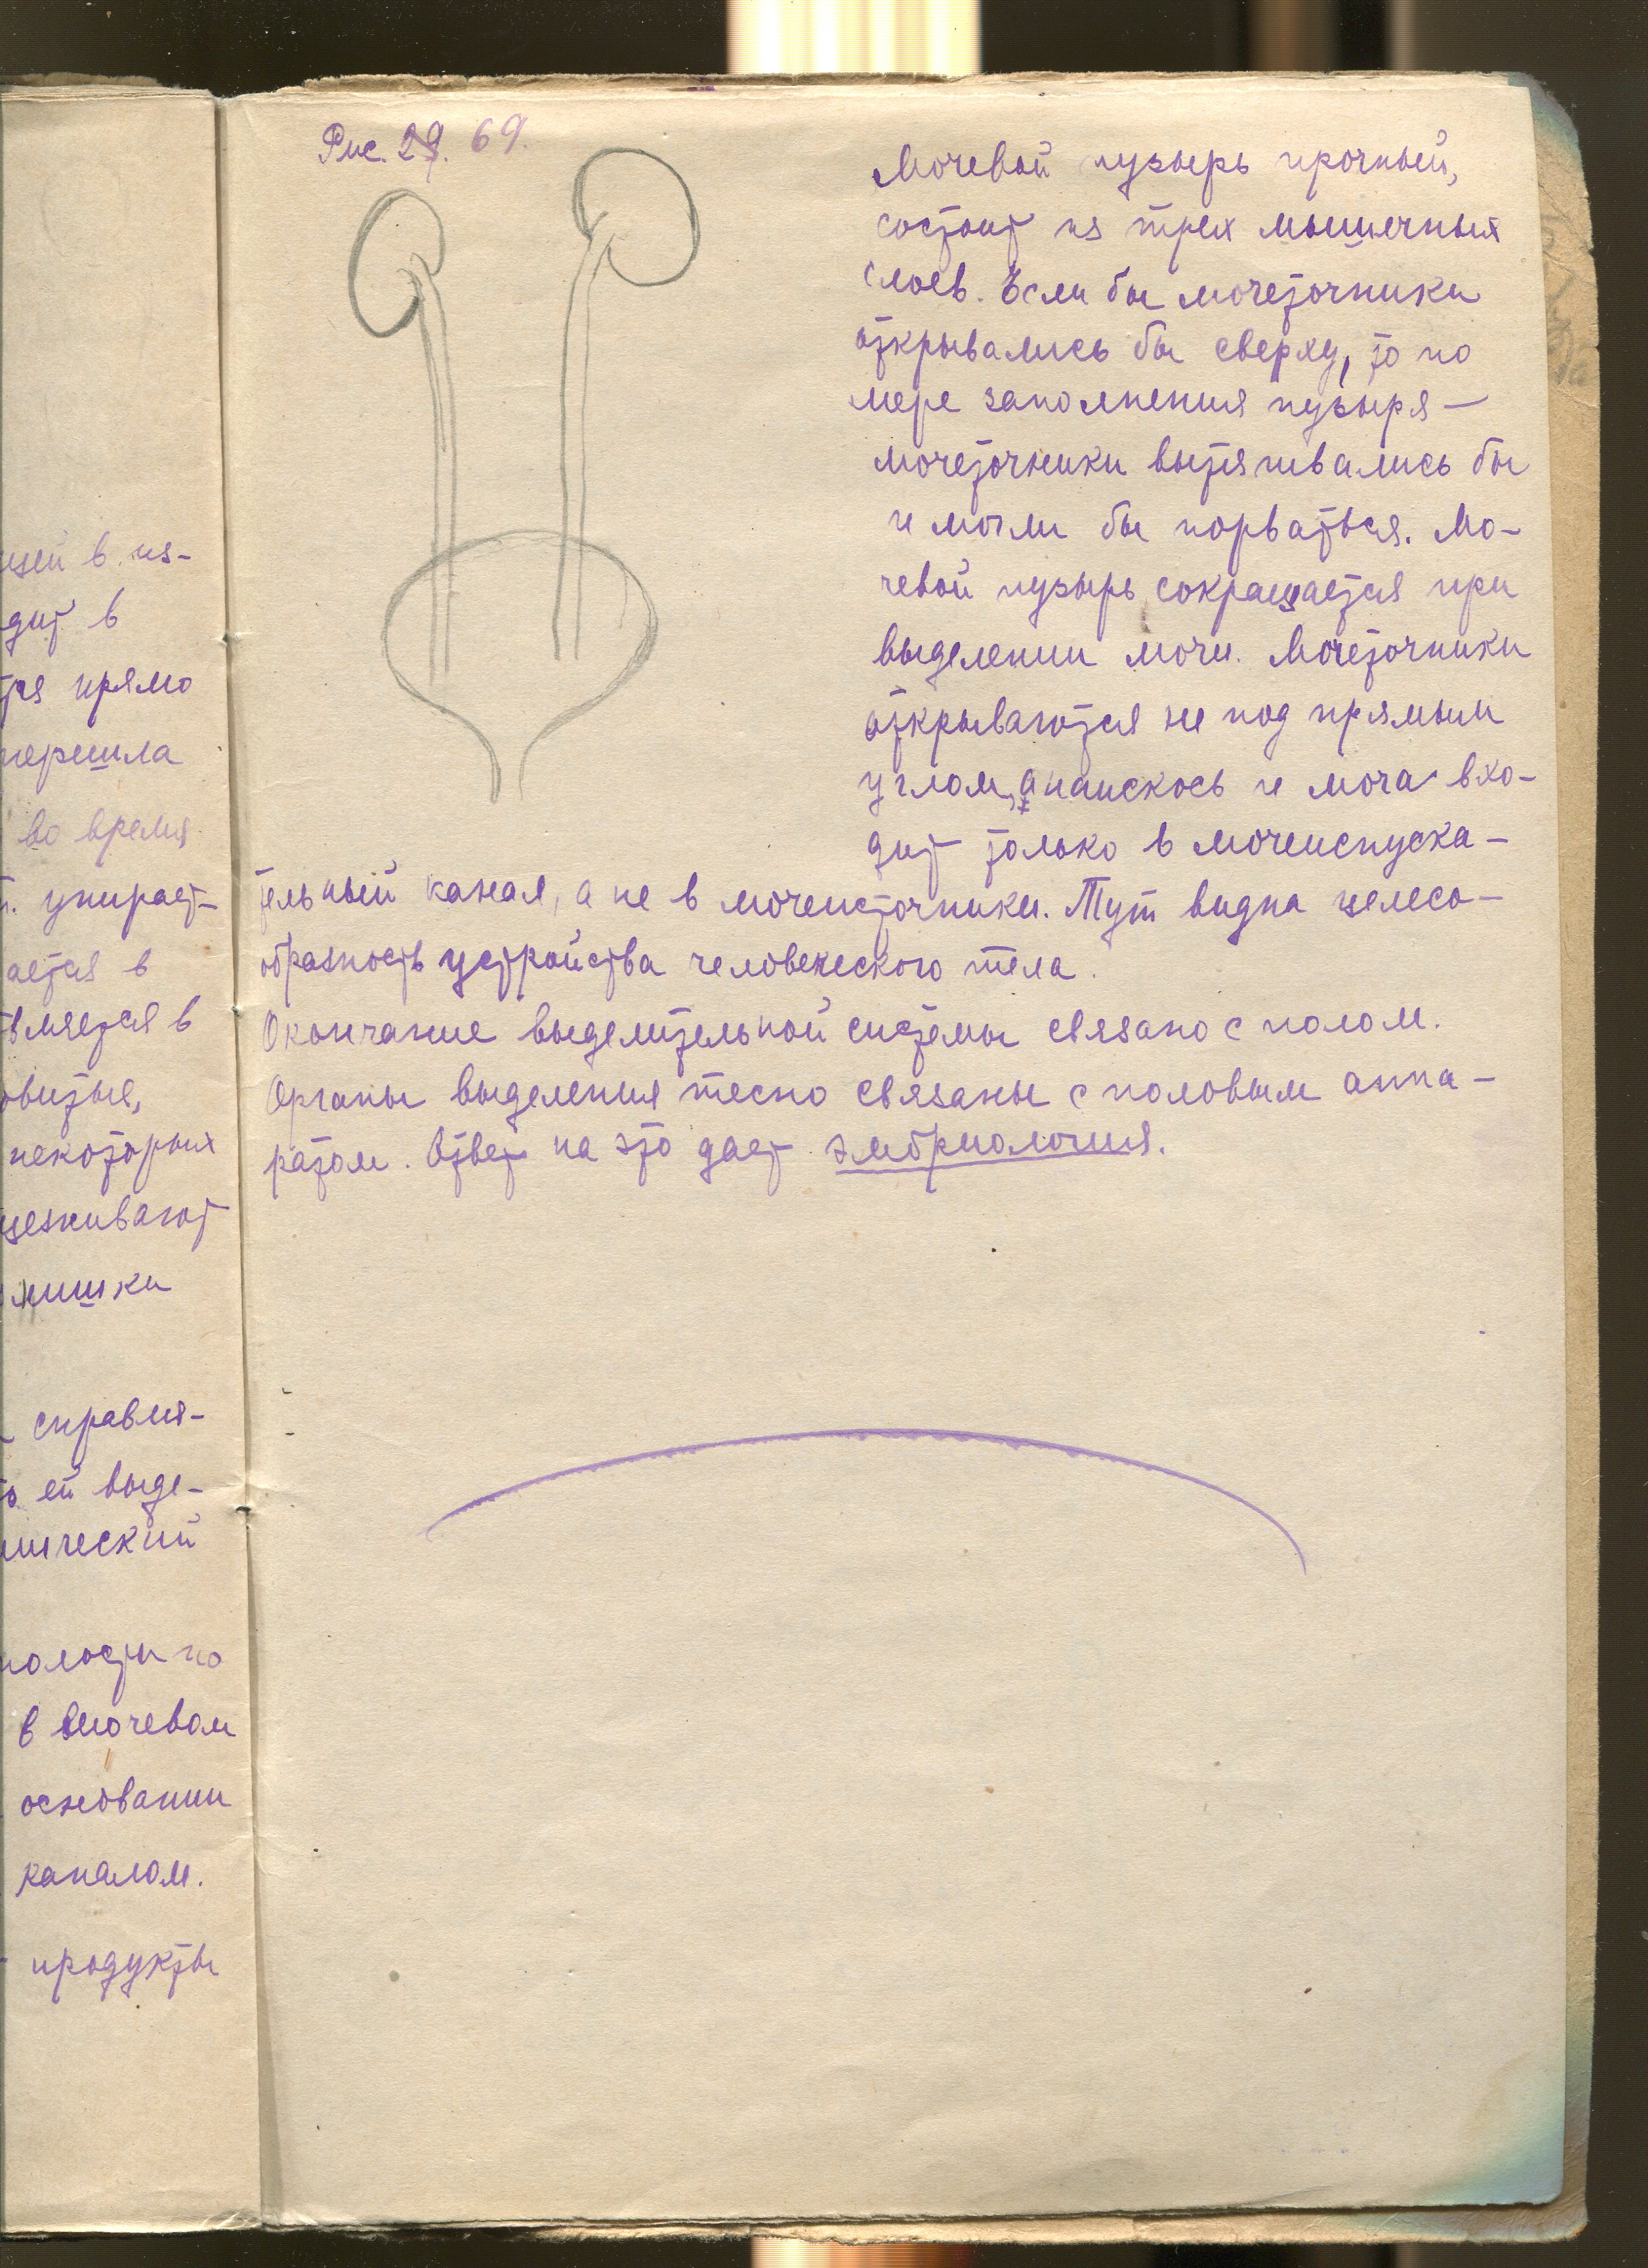 щей в из-
дит в
тся прямо
перешла
во время
т. упирает-
ается в
вляется в
овитые,
некоторых
цеживают
лишки
справля-
ей выде-
мический
полости по
в мочевом
основании
каналом.
продукты
Рис. 29. 69.
Мочевой пузырь прочный,
состоит из трех мышечных
слоев. Если бы мочеточники
открывались бы сверху, то по
мере заполнения пузыря —
мочеточники вытягивались бы
и могли бы порваться. Мо-
чевой пузырь сокращается при
выделении мочи. Мочеточники
открываются не под прямым
углом, а наискось и моча вхо-
дит только в мочеиспуска-
тельный канал, а не в мочеисточники. Тут видна целесо-
образность устройства человеческого тела.
Окончание выделительной системы связано с полом.
Органы выделения тесно связаны с половым аппа-
ратом. Ответ на это дает эмбриология.